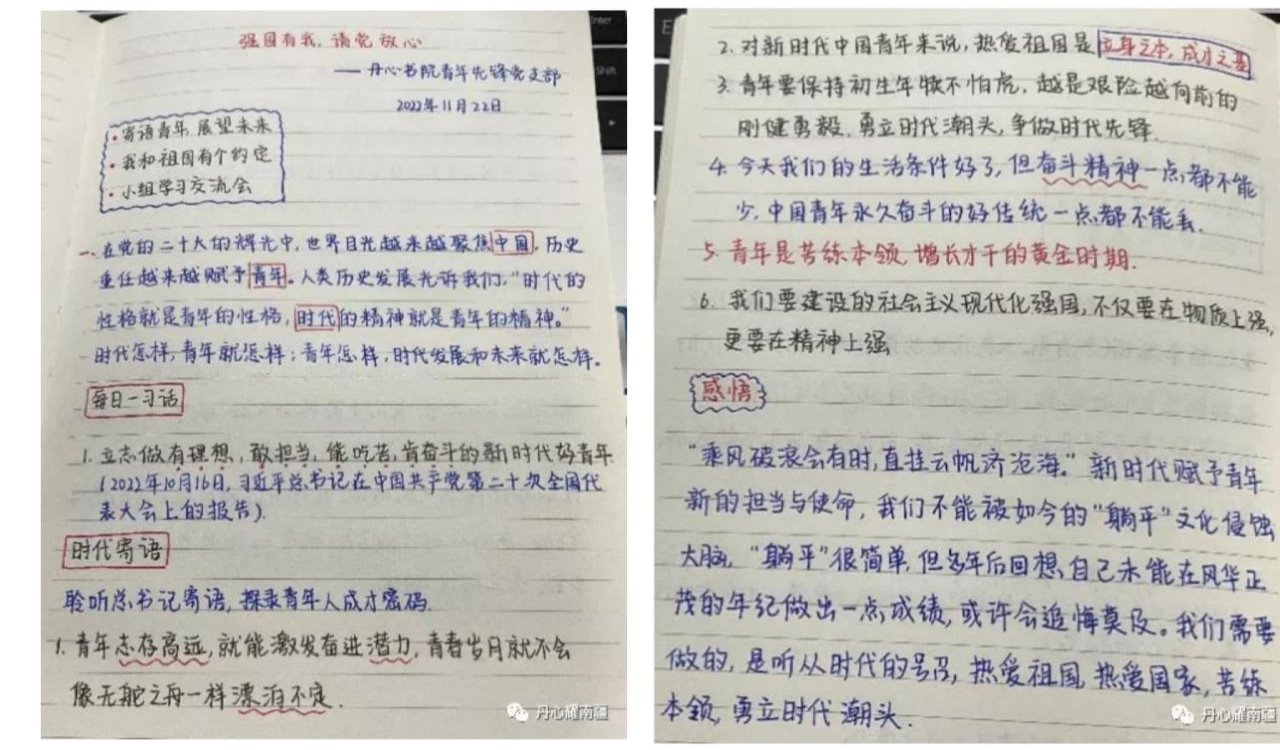 强国有我，请党放心
——丹心书院青年先锋党支部
2022年11月22日
·寄语青年，展望未来
·我和祖国有个约定
·小组学习交流会
一、在党的二十大的辉光中，世界目光越来越聚焦中国，历史
重任越来越赋予青年。人类历史发展光诉我们，“时代的
性格就是青年的性格，时代的精神就是青年的精神。”
时代怎样，青年就怎样；青年怎样，时代发展和未来就怎样。
每日一习话
1. 立志做有理想，敢担当，能吃苦，肯奋斗的新时代好青年
（2022年10月16日，习近平总书记在中国共产党第二十次全国代
表大会上的报告）.
时代寄语
聆听总书记寄语，探录青年人成才密码.
1. 青年志存高远，就能激发奋进潜力，青春岁月就不会
像无舵之舟一样漂泊不定.
丹心耀南疆
2. 对新时代中国青年来说，热爱祖国是立身之本，成才之基
3. 青年要保持初生年犊不怕虎，越是艰险越向前的
刚健勇毅，勇立时代潮头，争做时代先锋.
4. 今天我们的生活条件好了，但奋斗精神一点都不能
少，中国青年永久奋斗的好传统一点都不能丢.
5. 青年是苦练本领，增长才干的黄金时期.
6. 我们要建设的社会主义现代化强国，不仅要在物质上强，
更要在精神上强
感悟
“乘风破浪会有时，直挂云帆济沧海。”新时代赋予青年
新的担当与使命，我们不能被如今的“躺平”文化侵蚀
大脑，“躺平”很简单，但多年后回想，自己未能在风华正
茂的年纪做出一点成绩，或许会追悔莫及。我们需要
做的，是听从时代的号召，热爱祖国，热爱国家，苦练
本领，勇立时代潮头.
丹心耀南疆